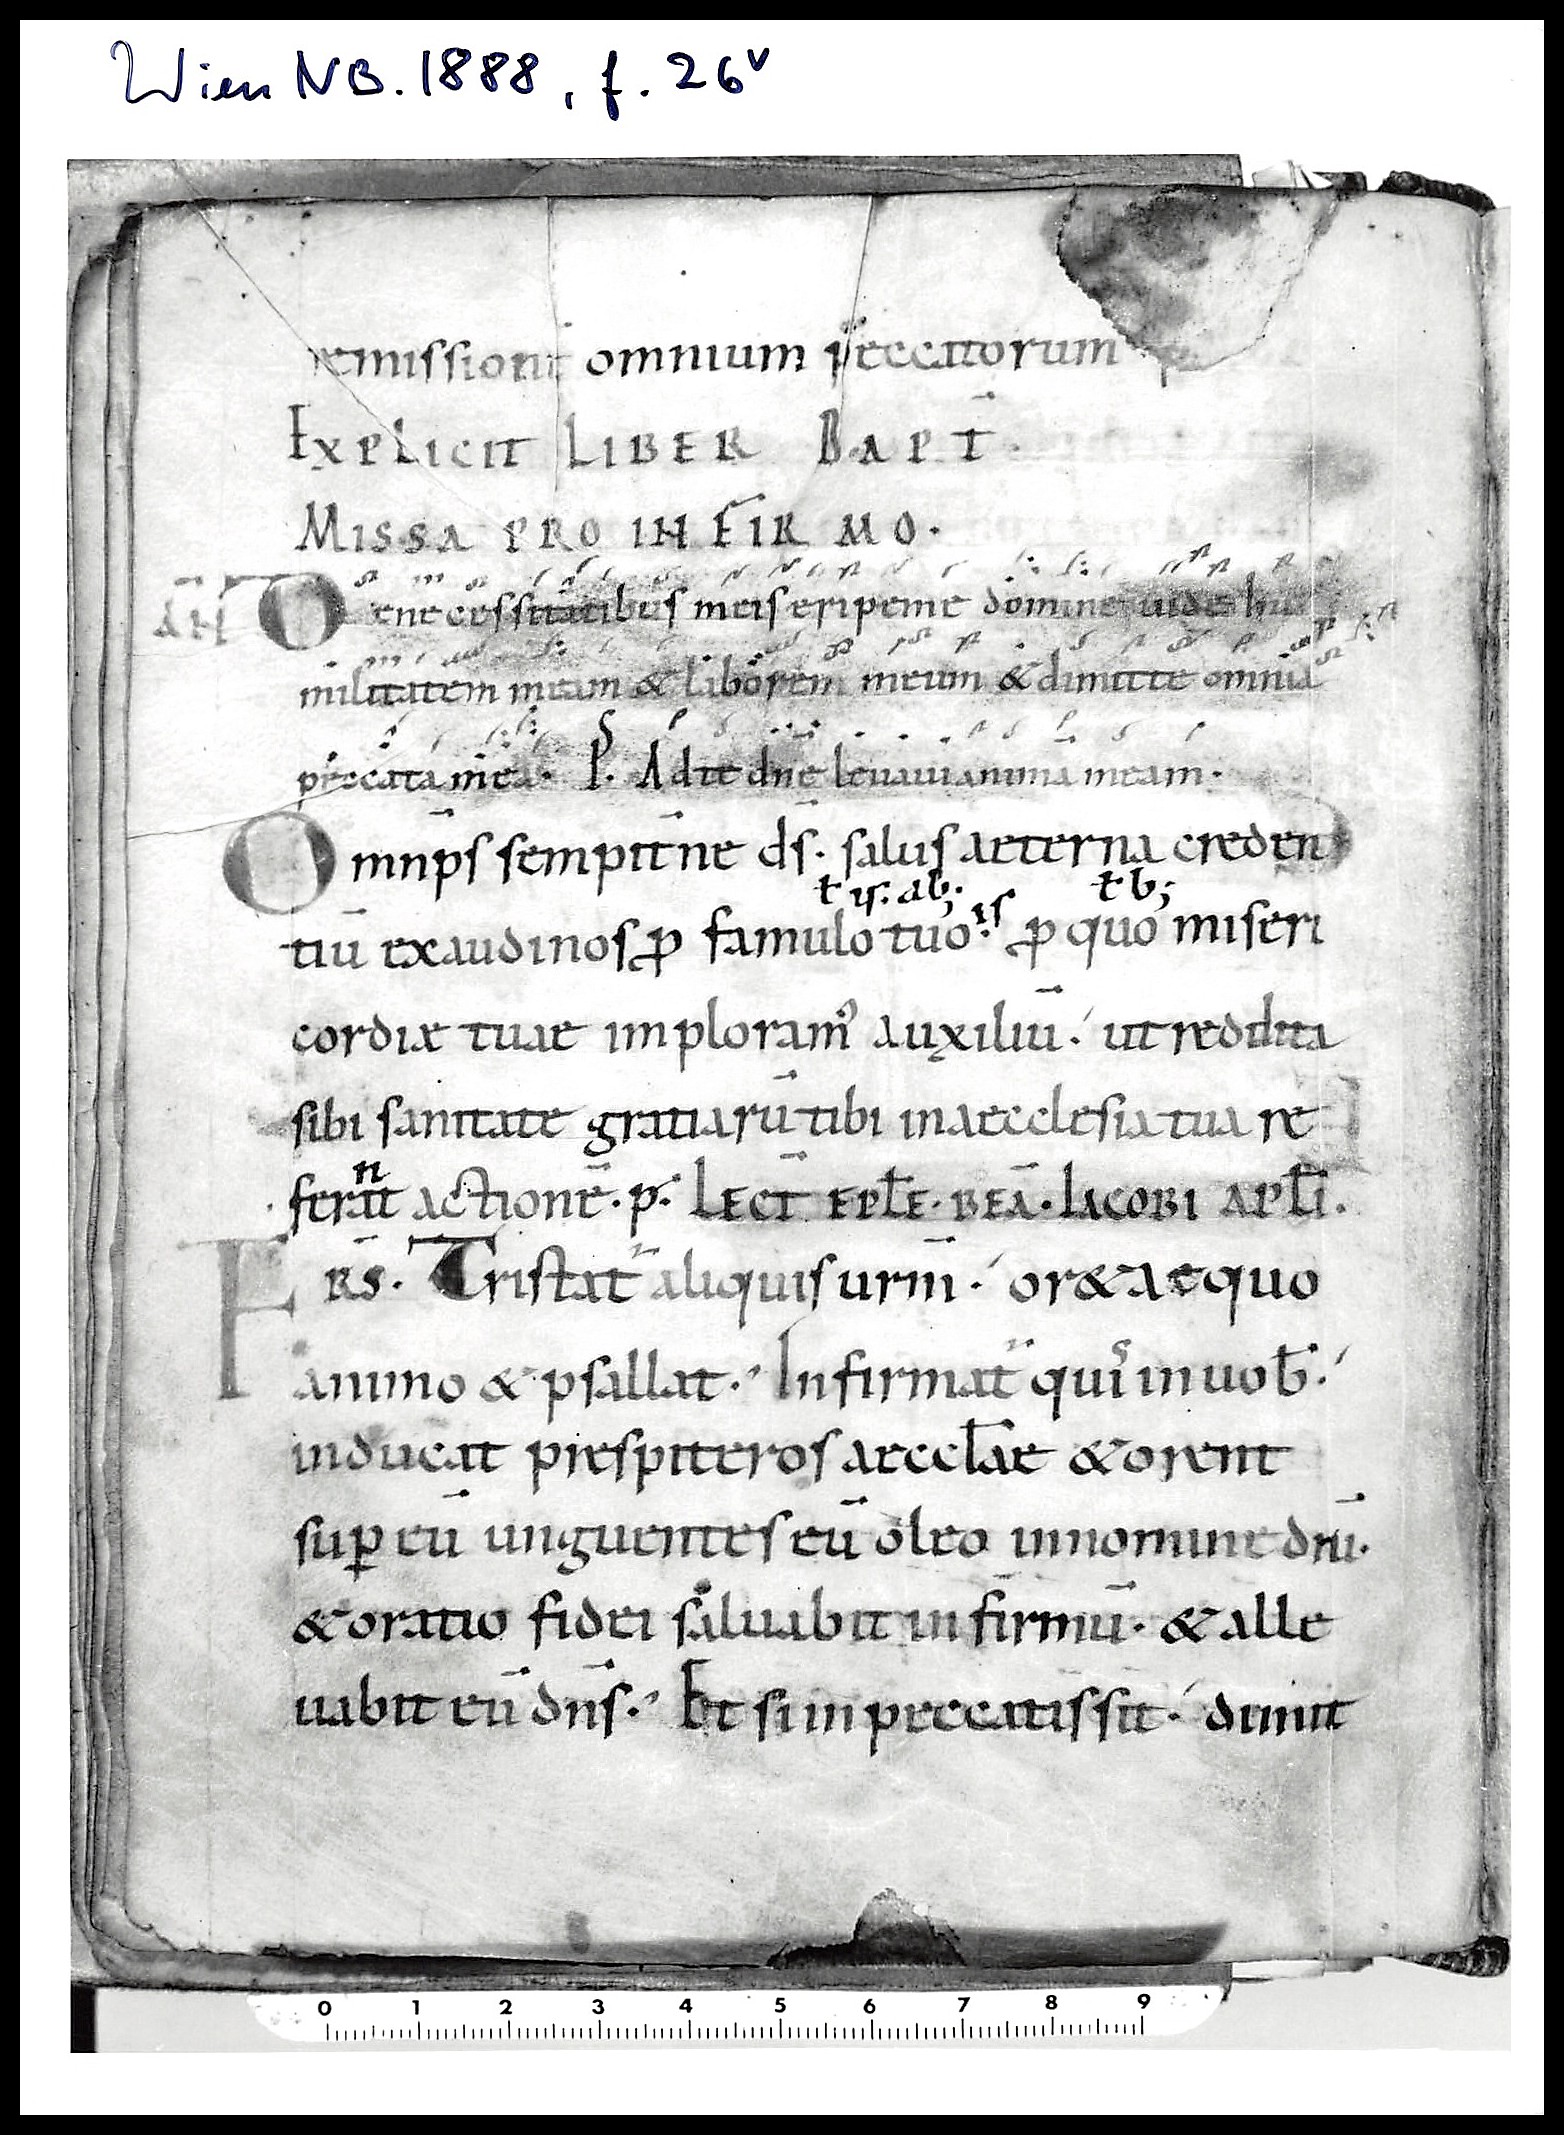 Wien NB. 1888, f. 26v
remissione omnium peccatorum
EXPLICIT LIBER BAPT̄.
MISSA PRO INFIRMO.
AN̄ De necessitatibus meis eripe me domine uide hu
militatem meam & laborem meum & dimitte omnia
peccata mea. P̄S. Ad te dn̄e leuaui anima meam.
Omnp̄s sempit̄ne ds̄. salus aeterna creden
ł is. ab; ł b;
tiū exaudi nos ꝑ famulo tuo. is ꝑ quo miseri
cordiæ tuae imploram᾿ auxiliū. ut reddita
sibi sanitate gratiarū tibi in aecclesia tua re
n
ferat actionē. p. LECT̄ EPL̄E. BEĀ. IACOBI APL̄I.
FRS̄. Tristat᾿ aliquis urm̄. or& aequo
animo & psallat. Infirmat᾿ quis in uob̄.
inducat prespiteros aeccl̄ae & orent
suꝑ eū unguentes eū oleo in nomine dn̄i.
& oratio fidei saluabit infirmū. & alle
uabit eū dn̄s. Et si in peccatis sit. dimit
0 1 2 3 4 5 6 7 8 9